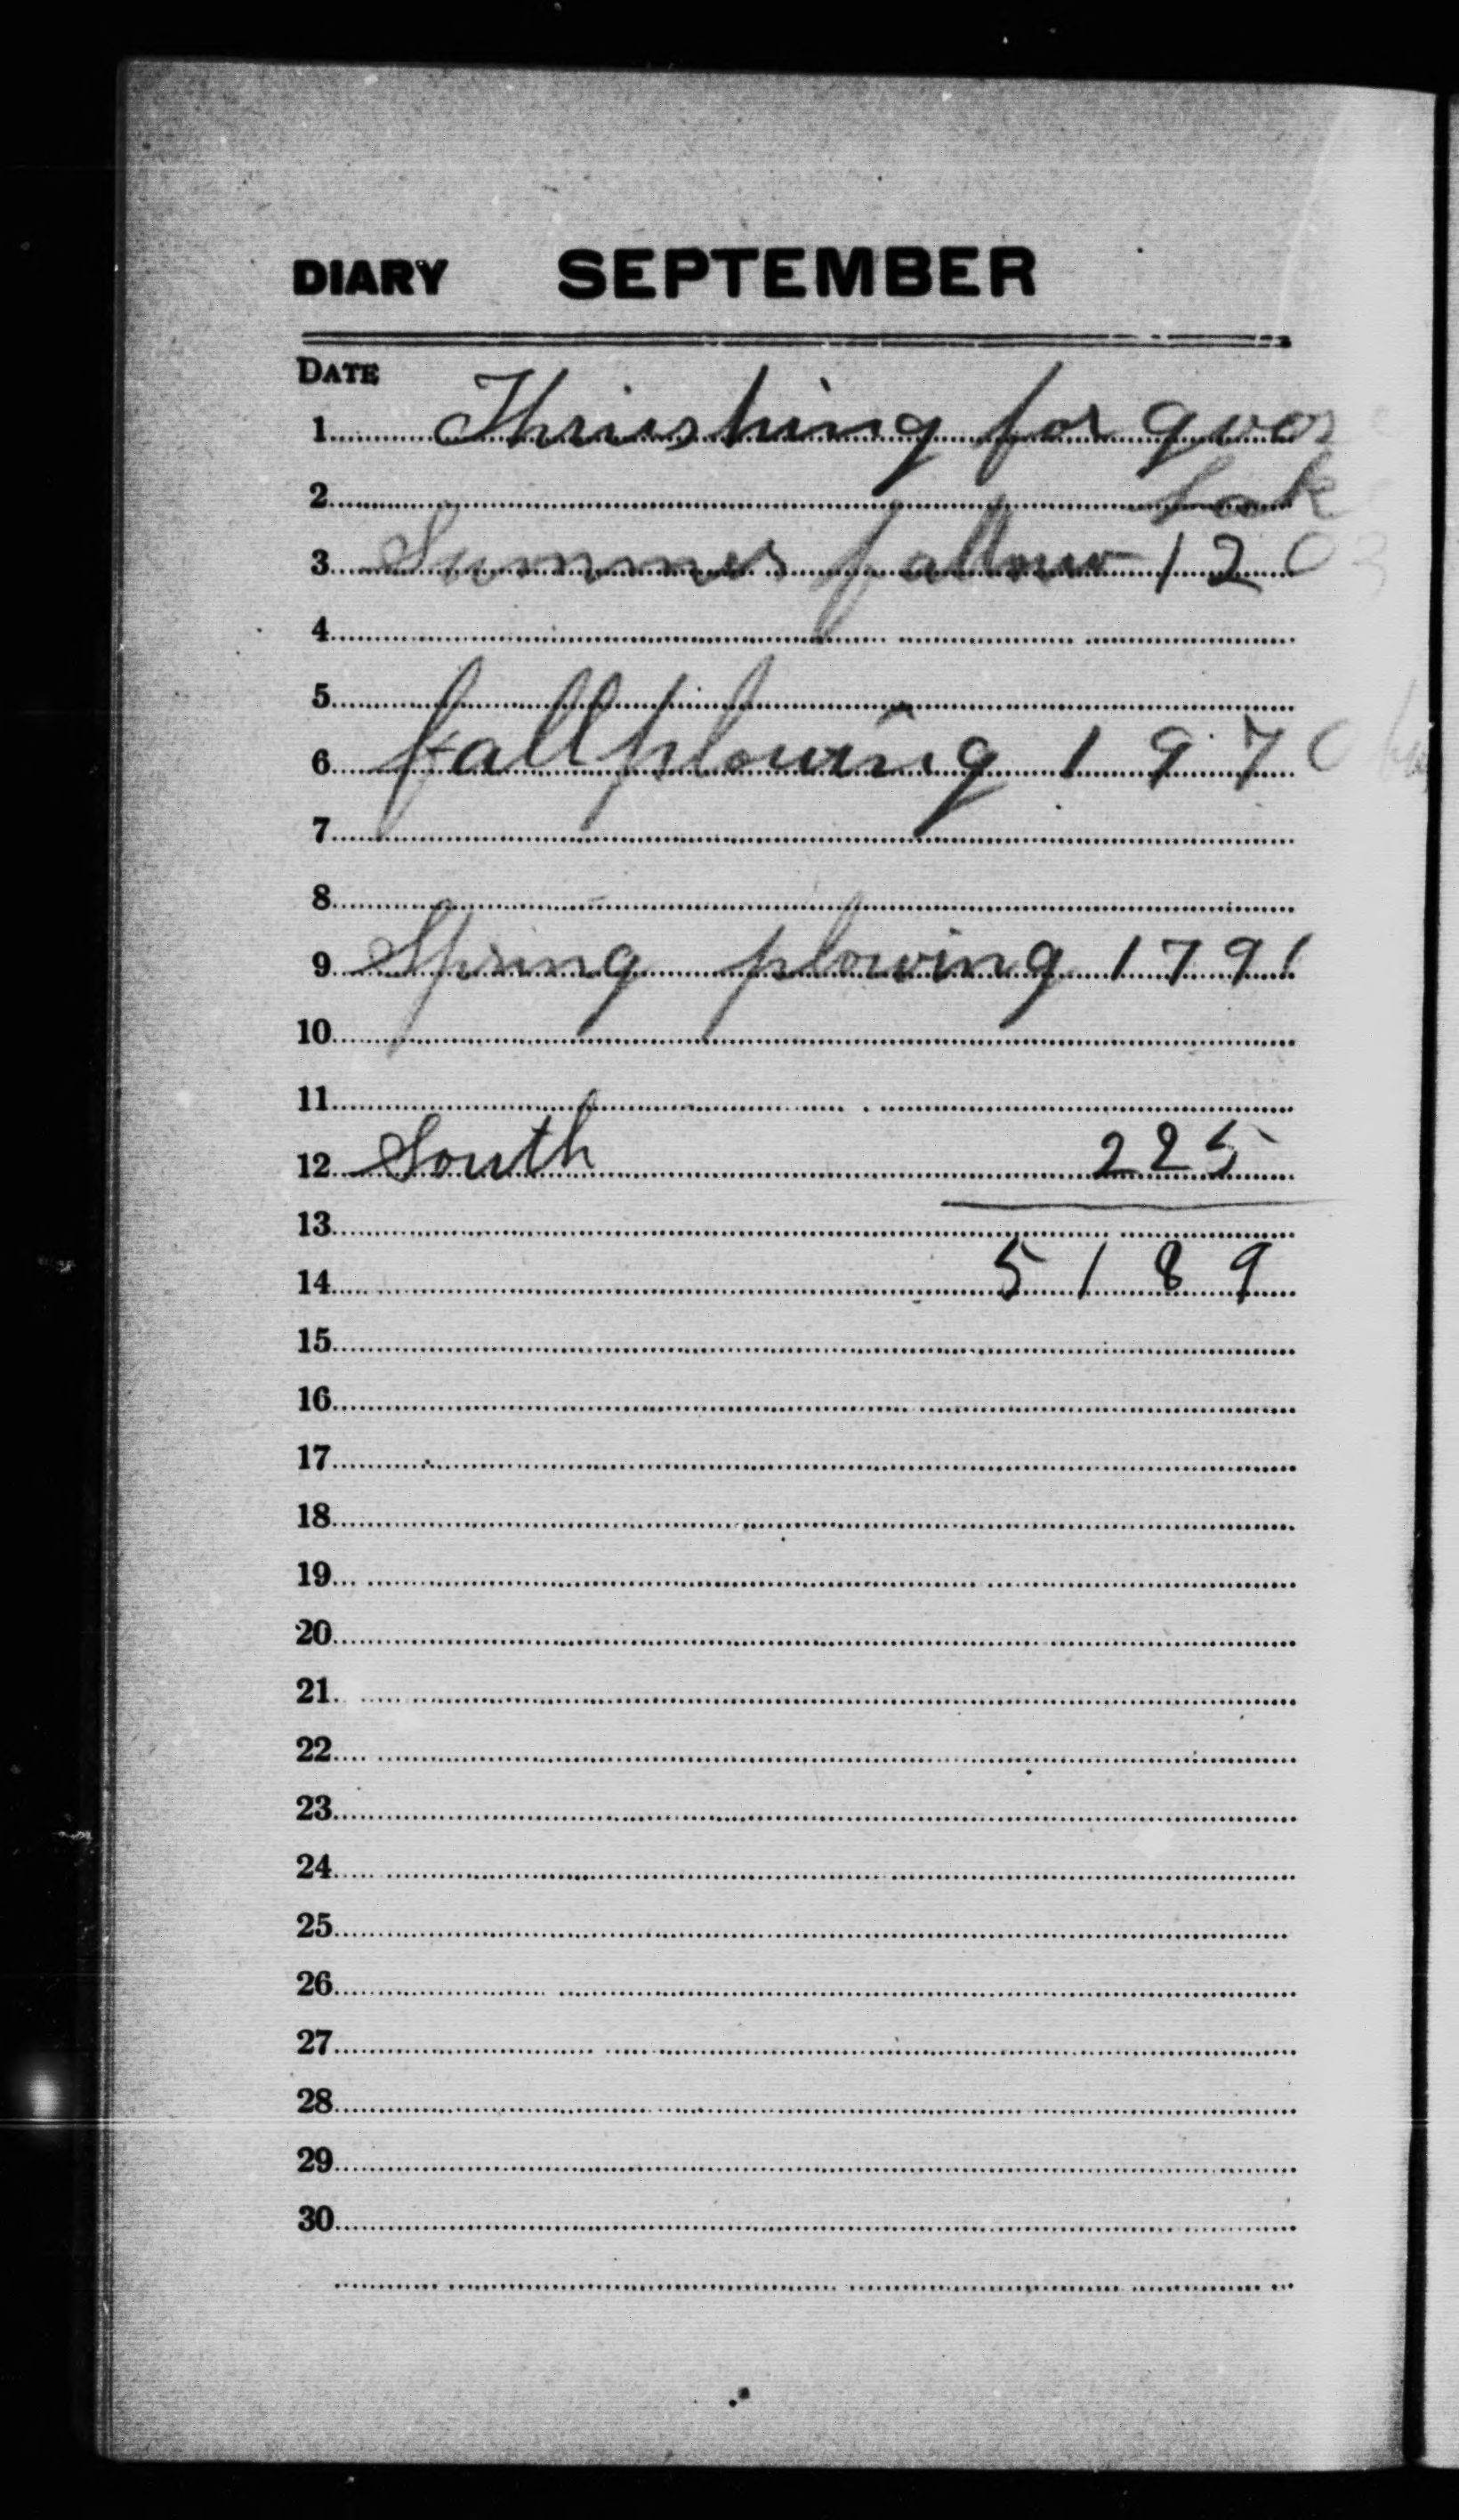 DIARY SEPTEMBER
DATE
1 Thrishing for goos
2 Lak
3 Summer fallow 1203
4
5
6 fall plowing 1970
7
8
9 Spring plowing 1791
10
11
12 South 225
13
14 5189
15
16
17
18
19
20
21
22
23
24
25
26
27
28
29
30